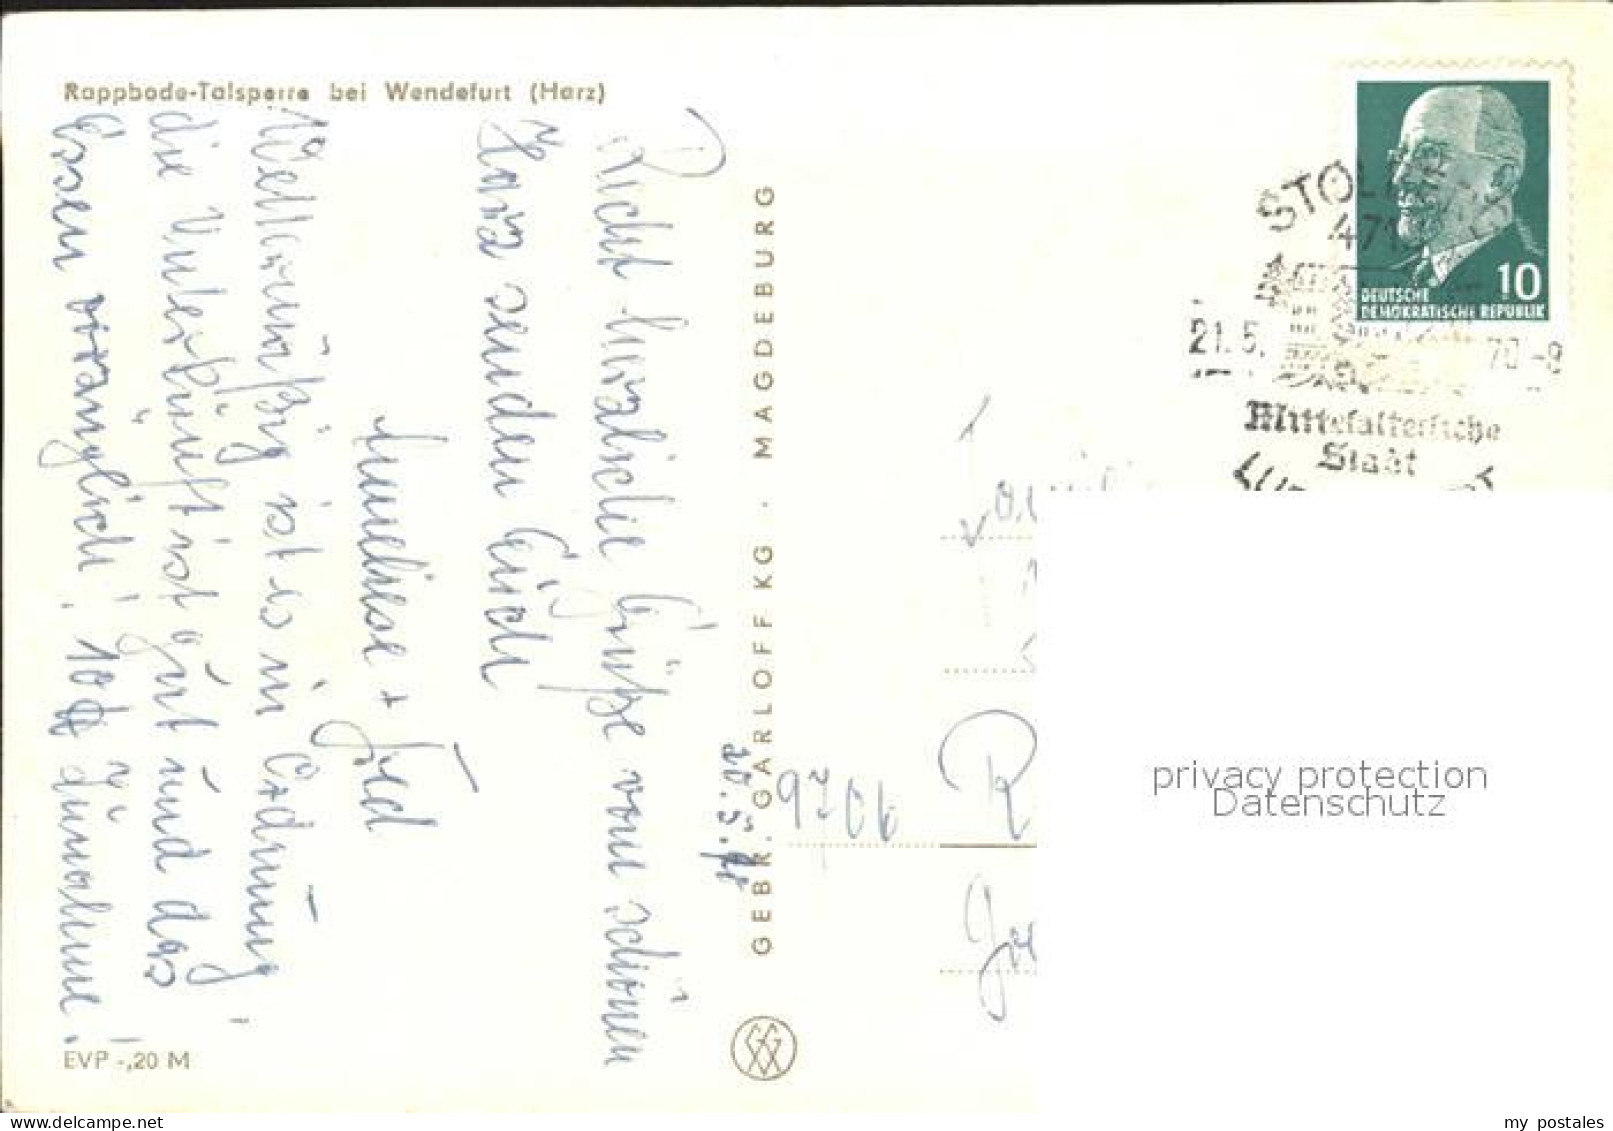 Rappbode-Talsperre bei Wendefurt (Harz)
Recht herzliche Grüße vom schönen
Harz senden Euch
Anneliese + Fred
Wettermäßig ist es in Ordnung
die Unterkunft ist gut und das
Essen vorzüglich!
zunahme!
20.5.70
GEBR. GARLOFF KG · MAGDEBURG
EVP -,20 M
STOL
471
21.5.
70-8
Mittelalterliche
Stadt
10
DEUTSCHE
DEMOKRATISCHE REPUBLIK
9706
R
privacy protection
Datenschutz
my postales